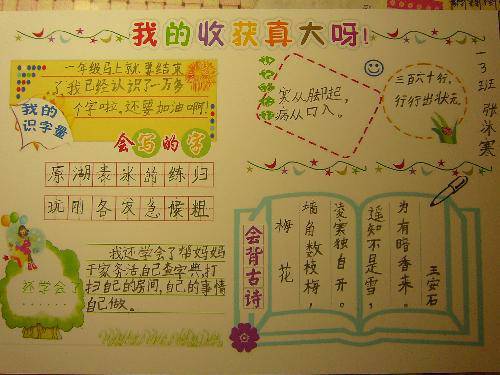 我的收获真大呀!
一年级马上就要结束
了我已经认识了一万多
个字啦,还要加油啊!
我的
识字量
会写的字
原湖表冰的练归
玩刚各发急候粗
还学会了
我还学会了帮妈妈
干家务活自己查字典,打
扫自己的房间,自己的事情
自己做。
寒从脚起,
病从口入。
三百六十行,
行行出状元。
一3班
会背古诗
梅 花
墙角数枝梅,
凌寒独自开。
遥知不是雪,
为有暗香来。
王安石